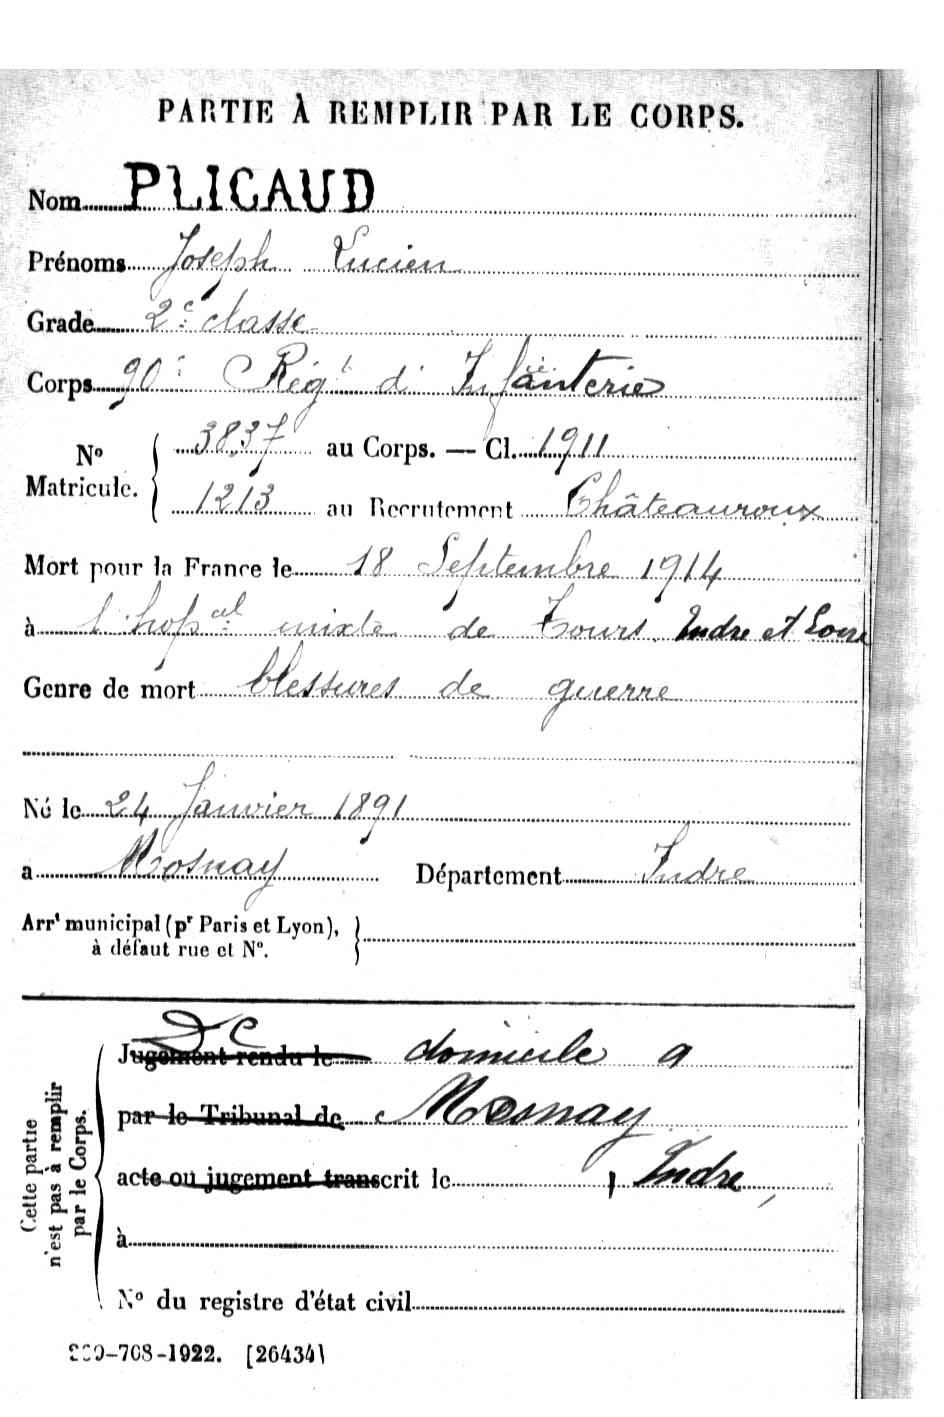 PARTIE À REMPLIR PAR LE CORPS.
Nom PLICAUD
Prénoms Joseph Lucien
Grade 2e classe
Corps 90e Régt d'Infanterie
No Matricule. { 3837 au Corps. — Cl. 1911
1213 au Recrutement Châteauroux
Mort pour la France le 18 Septembre 1914
à l'hopal mixte de Tours Indre et Loire
Genre de mort blessures de guerre
Né le 24 Janvier 1891
a Mosnay Département Indre
Arrt municipal (pr Paris et Lyon), }
à défaut rue et No.
Cette partie n'est pas à remplir par le Corps.
Jugement rendu le domicile a
par le Tribunal de Mosnay
acte ou jugement transcrit le Indre
à
No du registre d'état civil
-708-1922. [26434]